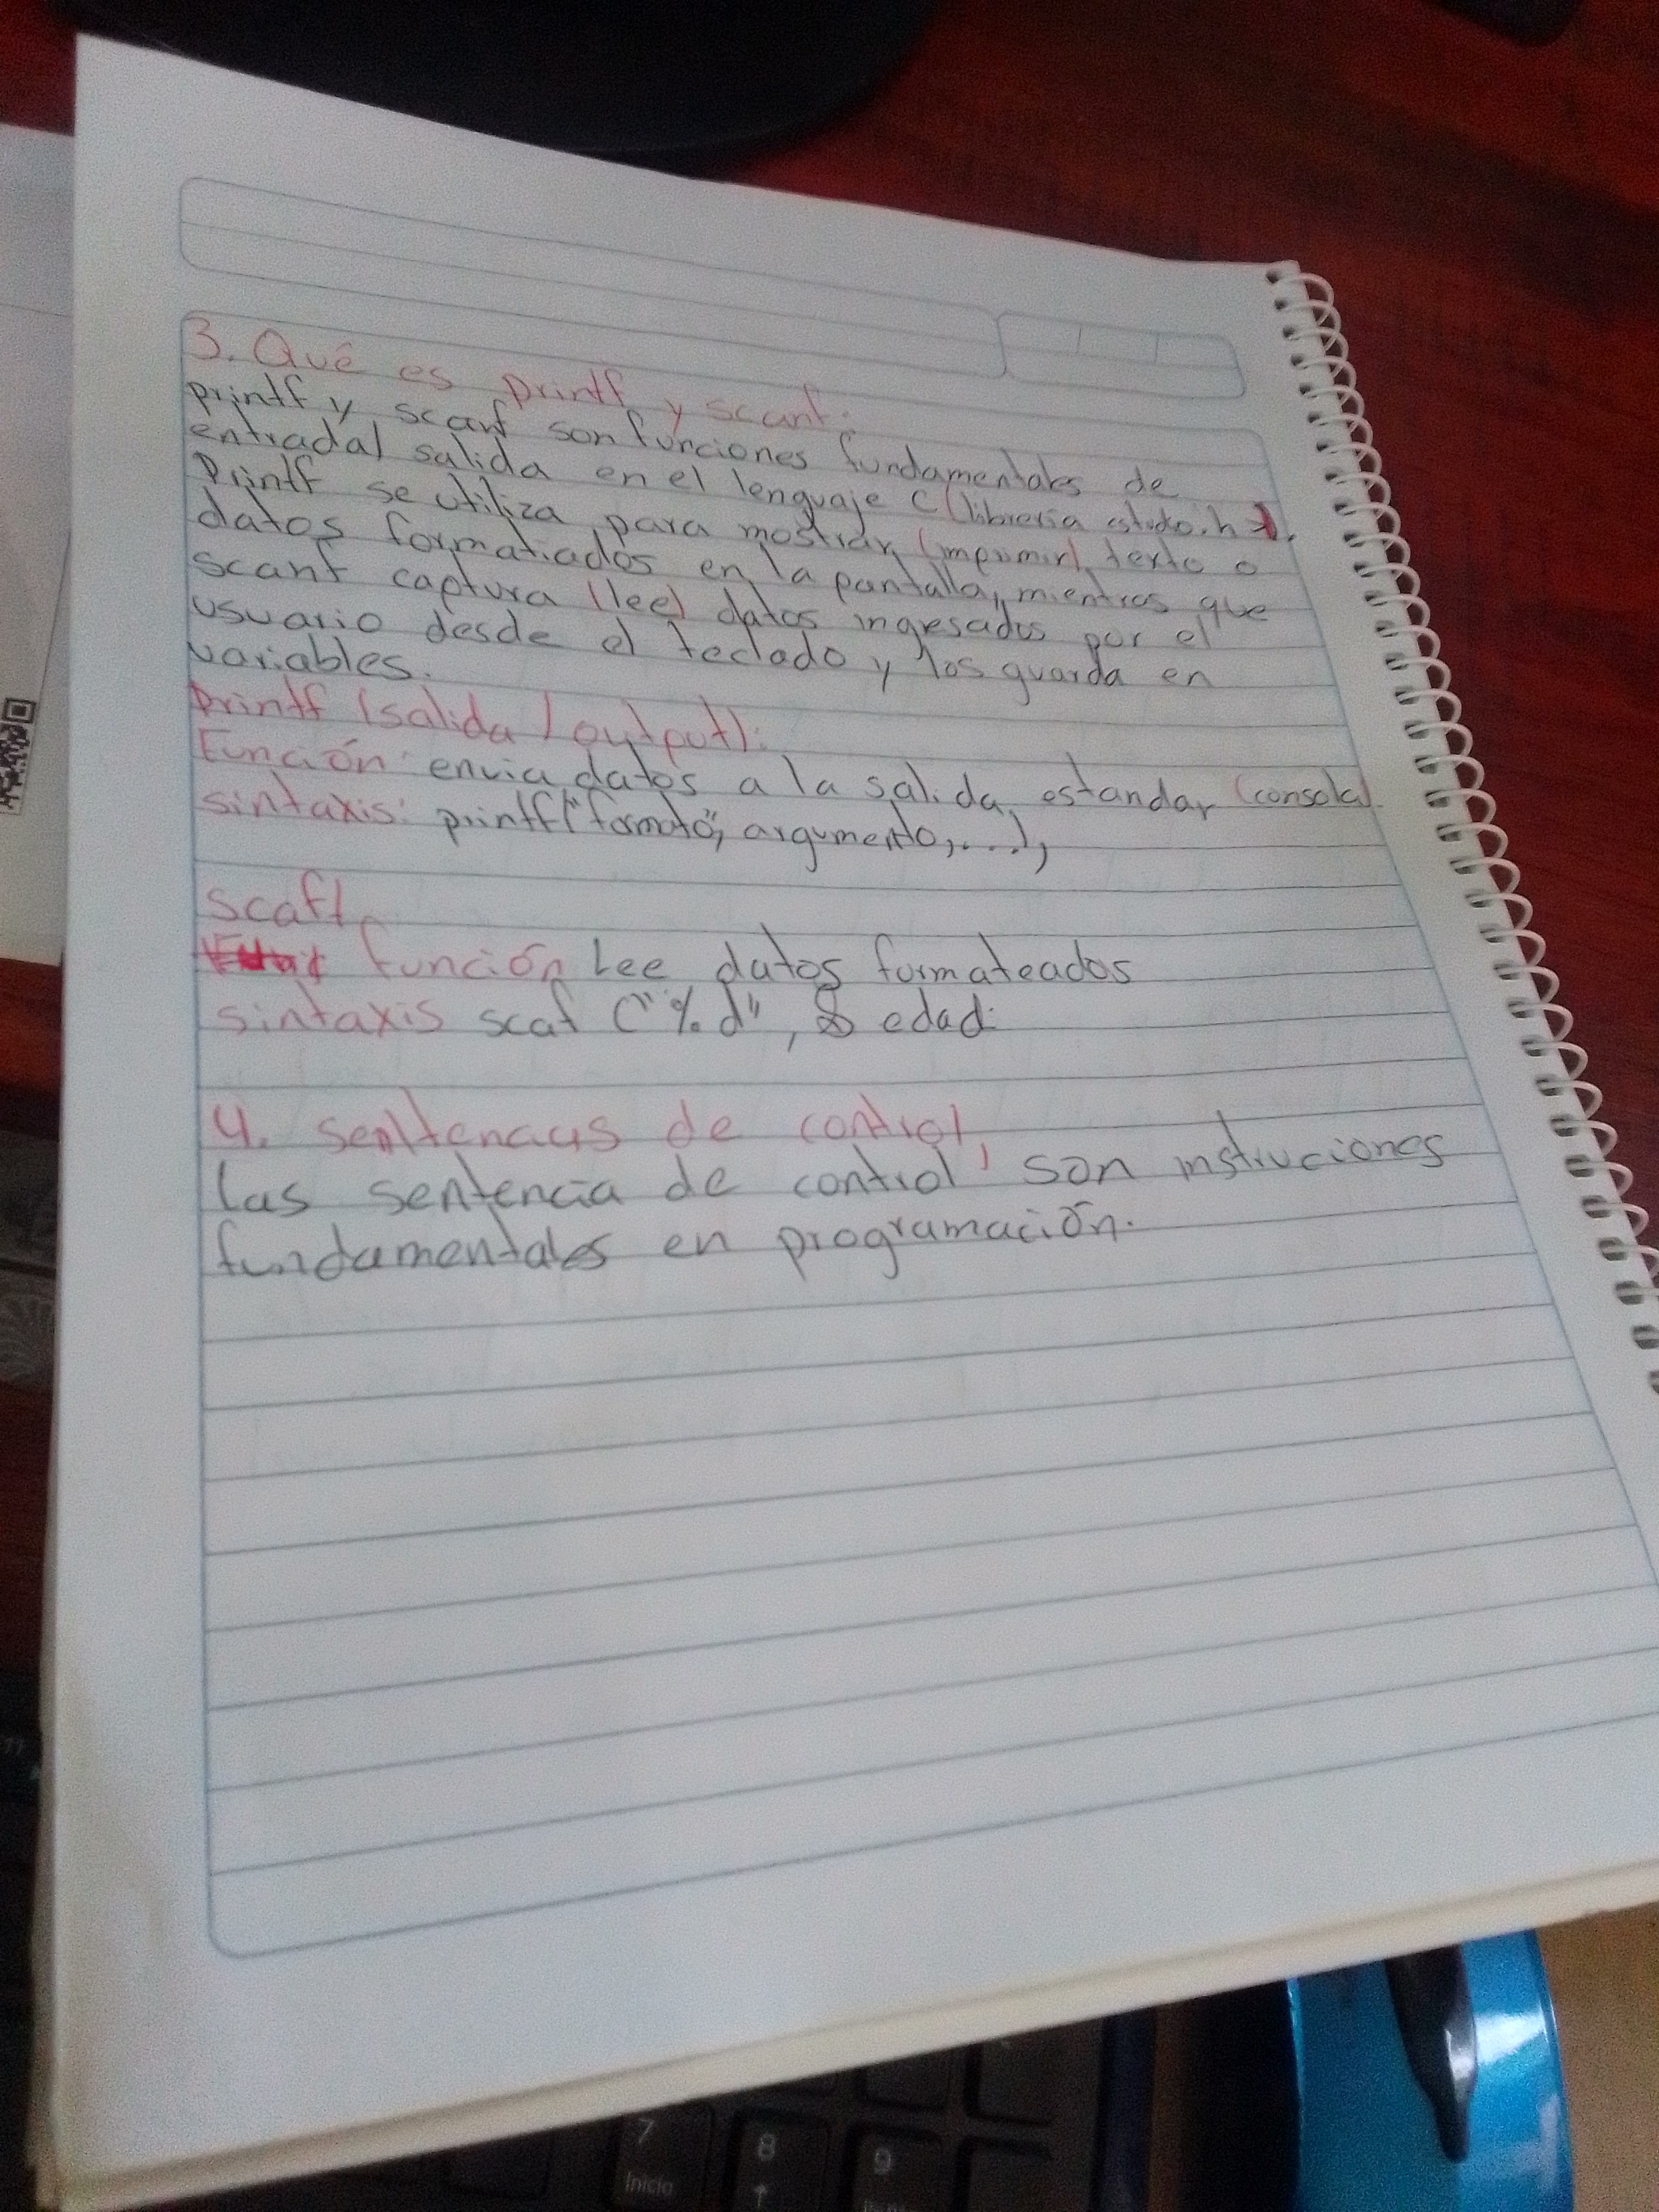 3. Qué es printf y scanf:
printf y scanf son funciones fundamentales de
entrada/ salida en el lenguaje C (libreria estudio.h>).
Printf se utiliza para mostrar (imprimir) texto o
datos formatiados en la pantalla, mientras que
scanf captura (lee) datos ingresados por el
usuario desde el teclado y los guarda en
variables.
Printf (salida / output):
Función: envia datos a la salida estandar (consola).
sintaxis: printf("formato", argumento,....);
scaft
función Lee datos formateados
sintaxis scaf ("%d", & edad:
4. sentencias de control,
Las sentencia de control son instruciones
fundamentales en programación.
7
Inicio
8
↑
9